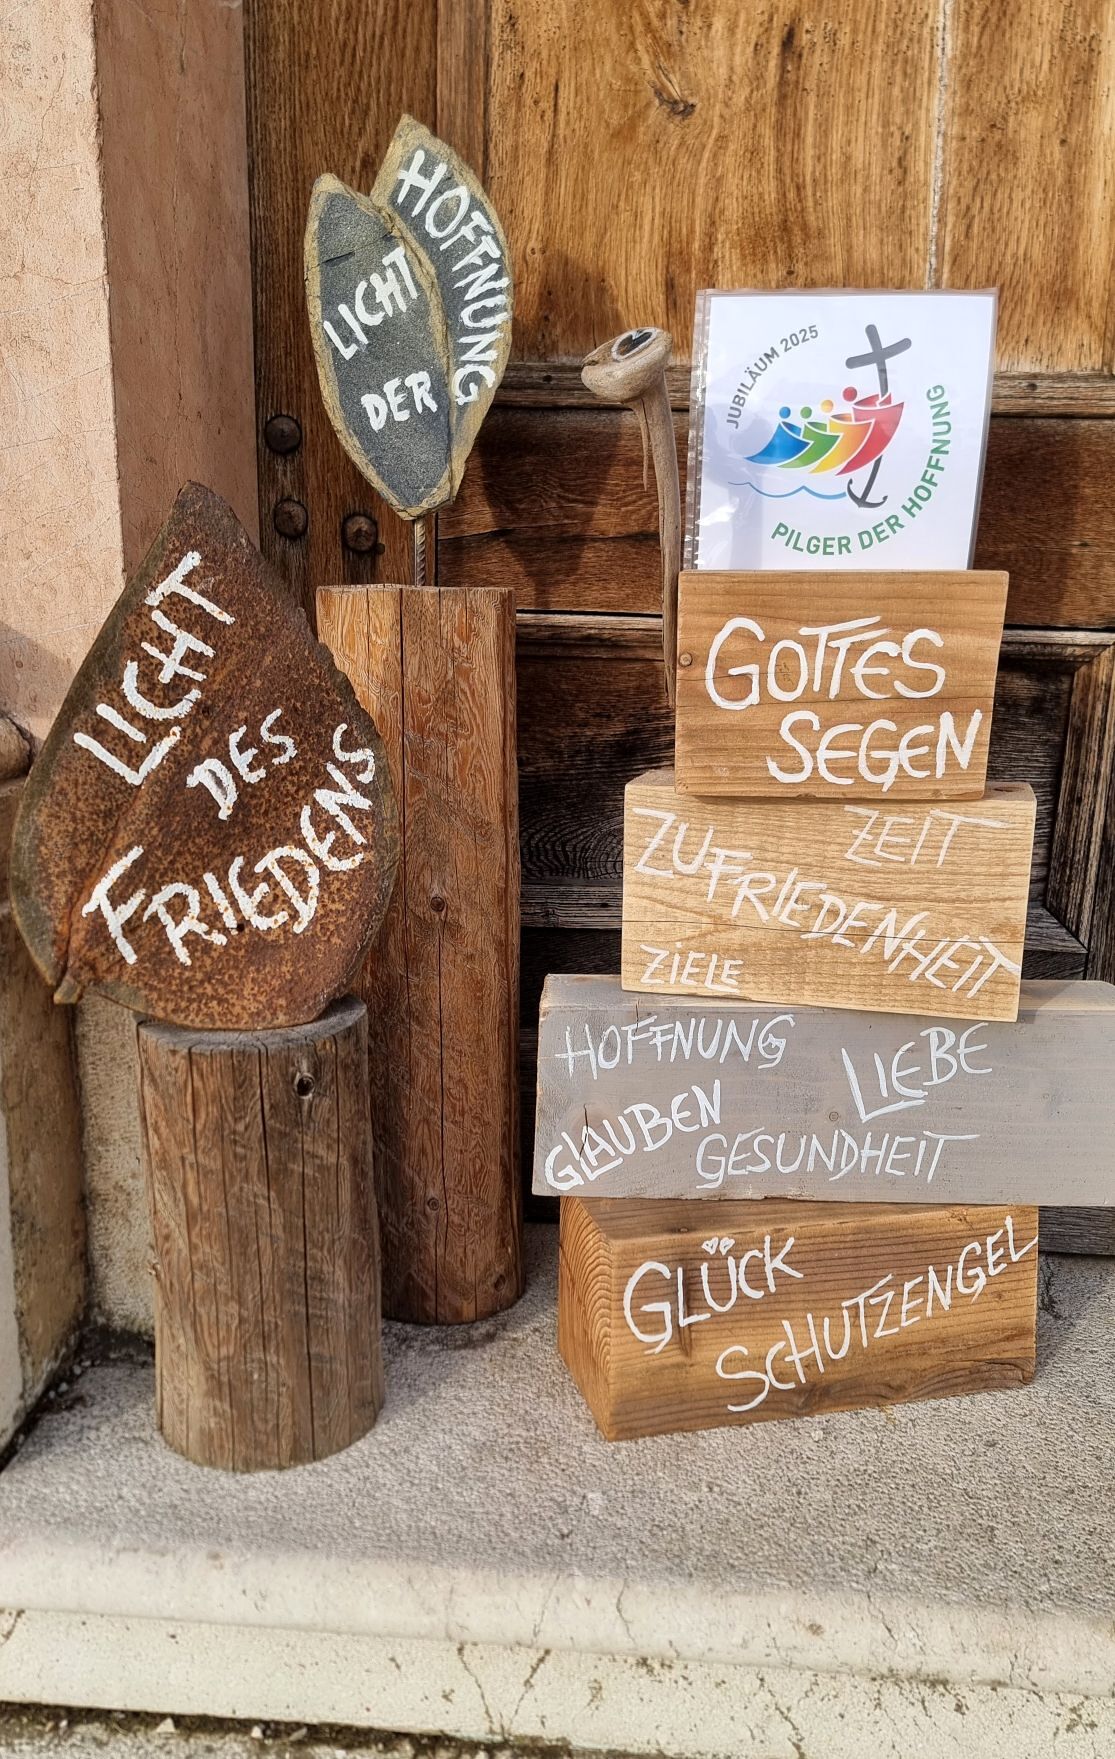 LICHT
DER
HOFFNUNG
LICHT
DES
FRIEDENS
JUBILÄUM 2025
PILGER DER HOFFNUNG
GOTTES
SEGEN
ZEIT
ZUFRIEDENHEIT
ZIELE
HOFFNUNG
LIEBE
GLAUBEN
GESUNDHEIT
GLÜCK
SCHUTZENGEL